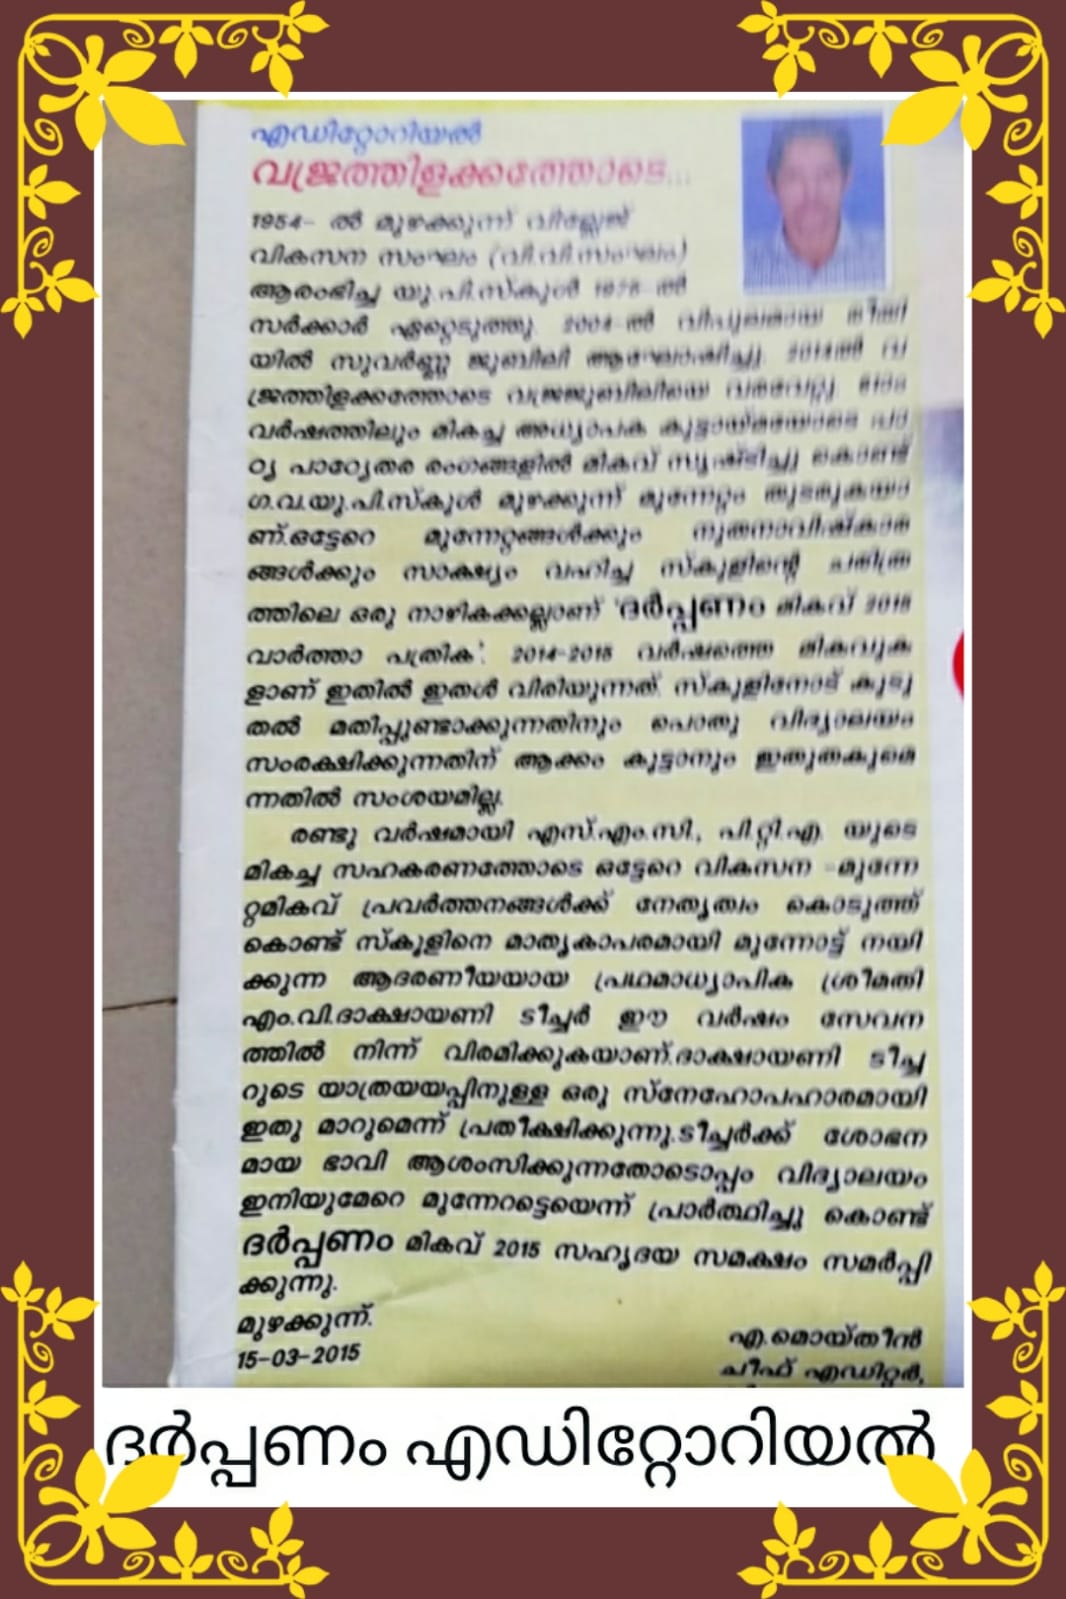 എഡിറ്റോറിയൽ
വജ്രത്തിളക്കത്തോടെ...
1954- ൽ മുഴക്കുന്ന് വില്ലേജ്
വികസന സംഘം (വി.വി.സംഘം)
ആരംഭിച്ച യു.പി.സ്കൂൾ
സർക്കാർ ഏറ്റെടുത്തു. 2004-ൽ വിപുലമായ രീതി
യിൽ സുവർണ്ണ ജൂബിലി ആഘോഷിച്ചു. 2014ൽ വ
ജ്രത്തിളക്കത്തോടെ വജ്രജൂബിലിയെ വരവേറ്റു.
വർഷത്തിലും മികച്ച അധ്യാപക കൂട്ടായ്മയോടെ പാ
ഠ്യ പാഠ്യേതര രംഗങ്ങളിൽ മികവ് സൃഷ്ടിച്ചു കൊണ്ട്
ഗ.വ.യു.പി.സ്കൂൾ മുഴക്കുന്ന് മുന്നേറ്റം തുടരുകയാ
ണ്.ഒട്ടേറെ മുന്നേറ്റങ്ങൾക്കും നൂതനാവിഷ്കാര
ങ്ങൾക്കും സാക്ഷ്യം വഹിച്ച സ്കൂളിന്റെ ചരിത്ര
ത്തിലെ ഒരു നാഴികക്കല്ലാണ് 'ദർപ്പണം മികവ് 2015
വാർത്താ പത്രിക'. 2014-2015 വർഷത്തെ മികവുക
ളാണ് ഇതിൽ ഇതൾ വിരിയുന്നത്. സ്കൂളിനോട് കൂടു
തൽ മതിപ്പുണ്ടാക്കുന്നതിനും പൊതു വിദ്യാലയം
സംരക്ഷിക്കുന്നതിന് ആക്കം കൂട്ടാനും ഇതുതകുമെ
ന്നതിൽ സംശയമില്ല.
രണ്ടു വർഷമായി എസ്.എം.സി., പി.റ്റി.എ. യുടെ
മികച്ച സഹകരണത്തോടെ ഒട്ടേറെ വികസന -മുന്നേ
റ്റമികവ് പ്രവർത്തനങ്ങൾക്ക് നേതൃത്വം കൊടുത്ത്
കൊണ്ട് സ്കൂളിനെ മാതൃകാപരമായി മുന്നോട്ട് നയി
ക്കുന്ന ആദരണീയയായ പ്രഥമാധ്യാപിക ശ്രീമതി
എം.വി.ദാക്ഷായണി ടീച്ചർ ഈ വർഷം സേവന
ത്തിൽ നിന്ന് വിരമിക്കുകയാണ്.ദാക്ഷായണി ടീച്ച
റുടെ യാത്രയയപ്പിനുള്ള ഒരു സ്നേഹോപഹാരമായി
ഇതു മാറുമെന്ന് പ്രതീക്ഷിക്കുന്നു.ടീച്ചർക്ക് ശോഭന
മായ ഭാവി ആശംസിക്കുന്നതോടൊപ്പം വിദ്യാലയം
ഇനിയുമേറെ മുന്നേറട്ടെയെന്ന് പ്രാർത്ഥിച്ചു കൊണ്ട്
ദർപ്പണം മികവ് 2015 സഹൃദയ സമക്ഷം സമർപ്പി
ക്കുന്നു.
മുഴക്കുന്ന്.
15-03-2015
എ.മൊയ്തീൻ
ചീഫ് എഡിറ്റർ,
ദർപ്പണം എഡിറ്റോറിയൽ